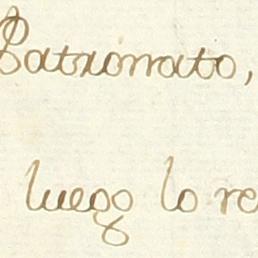 Patronato,
luego lo re